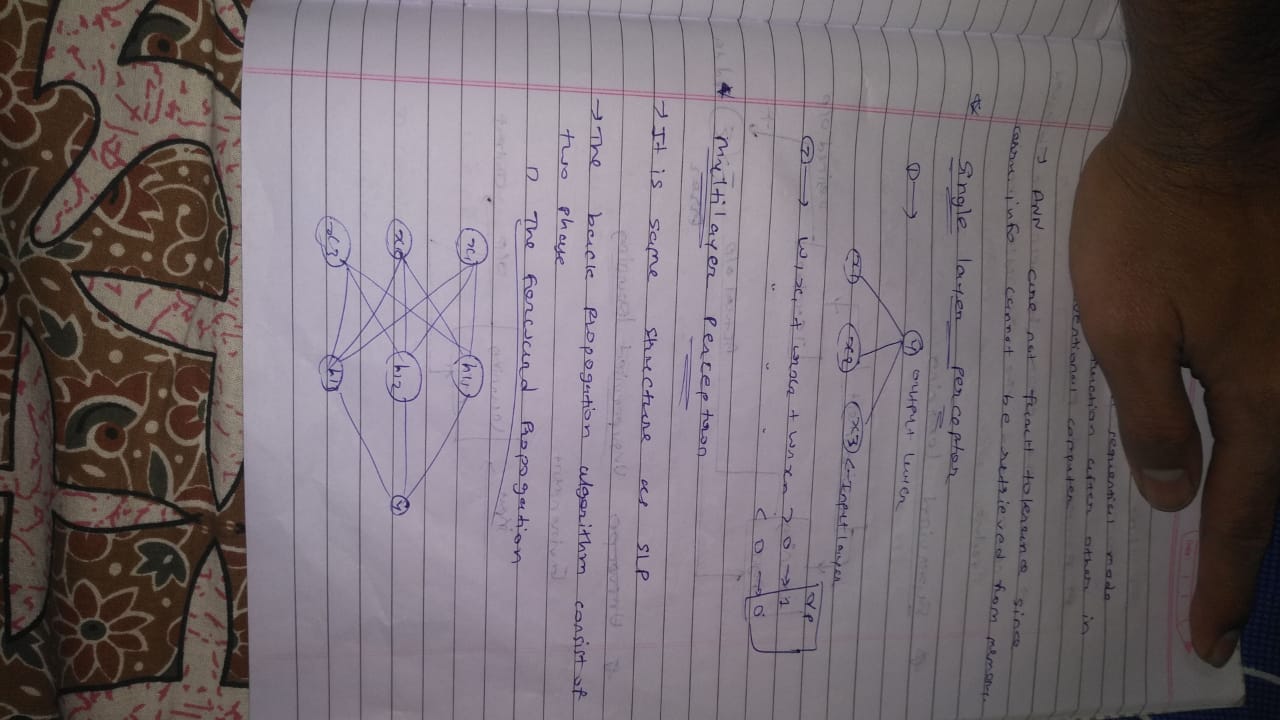 sequential mode
function after other in
ventional computer
→ ANN are not fault tolerance since
info cannot be retrieved from memory
* Single layer perceptor
1) →
y output layer
x1 x2 x3 ← input layer
2) → w1x1 + w2x2 + wnxn > 0 → 1 o/p
" " " < 0 → 0
* Multilayer Perceptron
→ It is same structure as SLP
→ The back Propogation algorithm consist of
two phase
1) The Forward Propogation
x1 h1
x2 h2 y
x3 h1